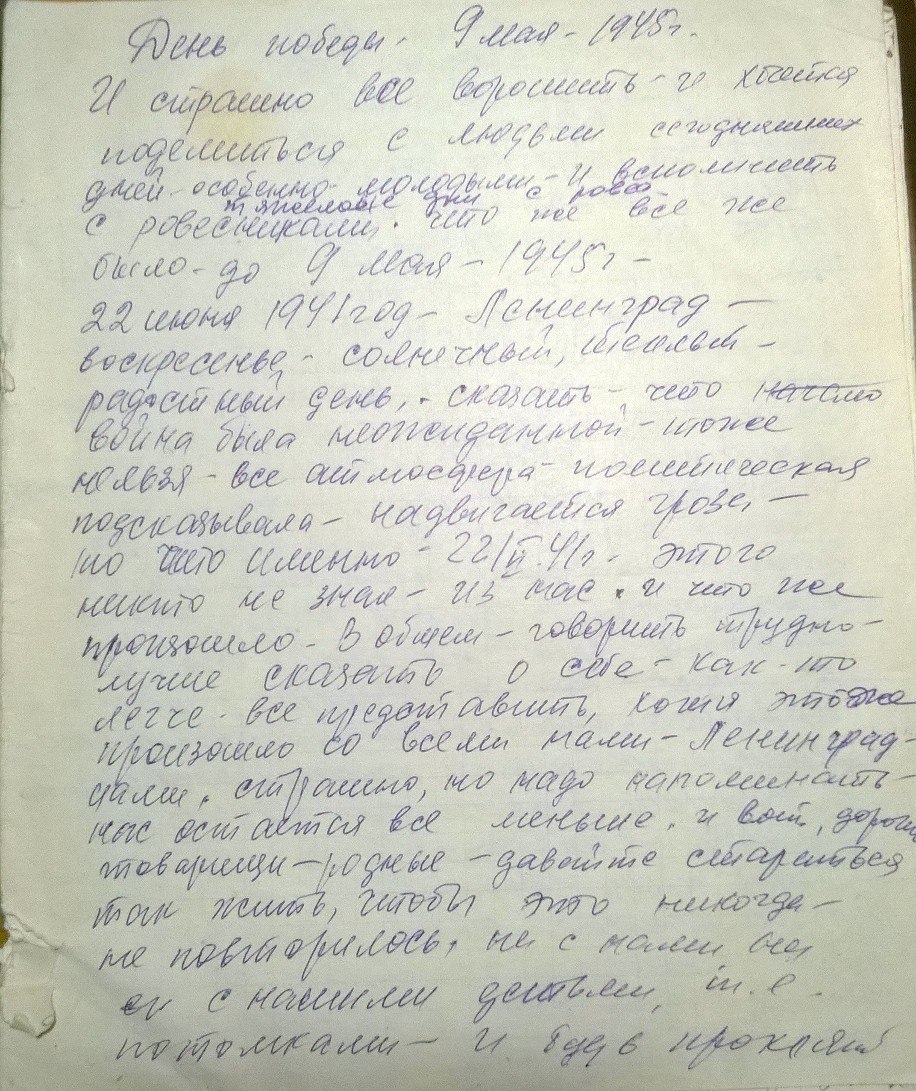 День победы. 9 мая - 1945г.
И страшно все ворошить - и хочется
поделиться с людьми сегодняшних
дней - особенно молодыми - и вспомнить
тяжелые дни с
с ровесниками. что же все же
было - до 9 мая - 1945г -
22 июня 1941 год - Ленинград -
воскресенье - солнечный, теплый -
радостный день, . сказать - что начало
война была неожиданной - тоже
нельзя - все атмосфера политическая
подсказывала - надвигается гроза -
но что именно - 22/VI.41г. этого
никто не знал - из нас . и что же
произошло - в общем - говорить трудно -
лучше сказать о себе - как-то
легче - все представить, хотя это же
произошло со всеми нами - Ленинград-
цами. страшно, но надо напоминать -
нас остается все меньше. и вот, дороги
товарищи - родные - давайте стараться
так жить, чтобы это никогда -
не повторилось, ни с нами
с нашими детьми, т.е.
потомками - и будь проклят